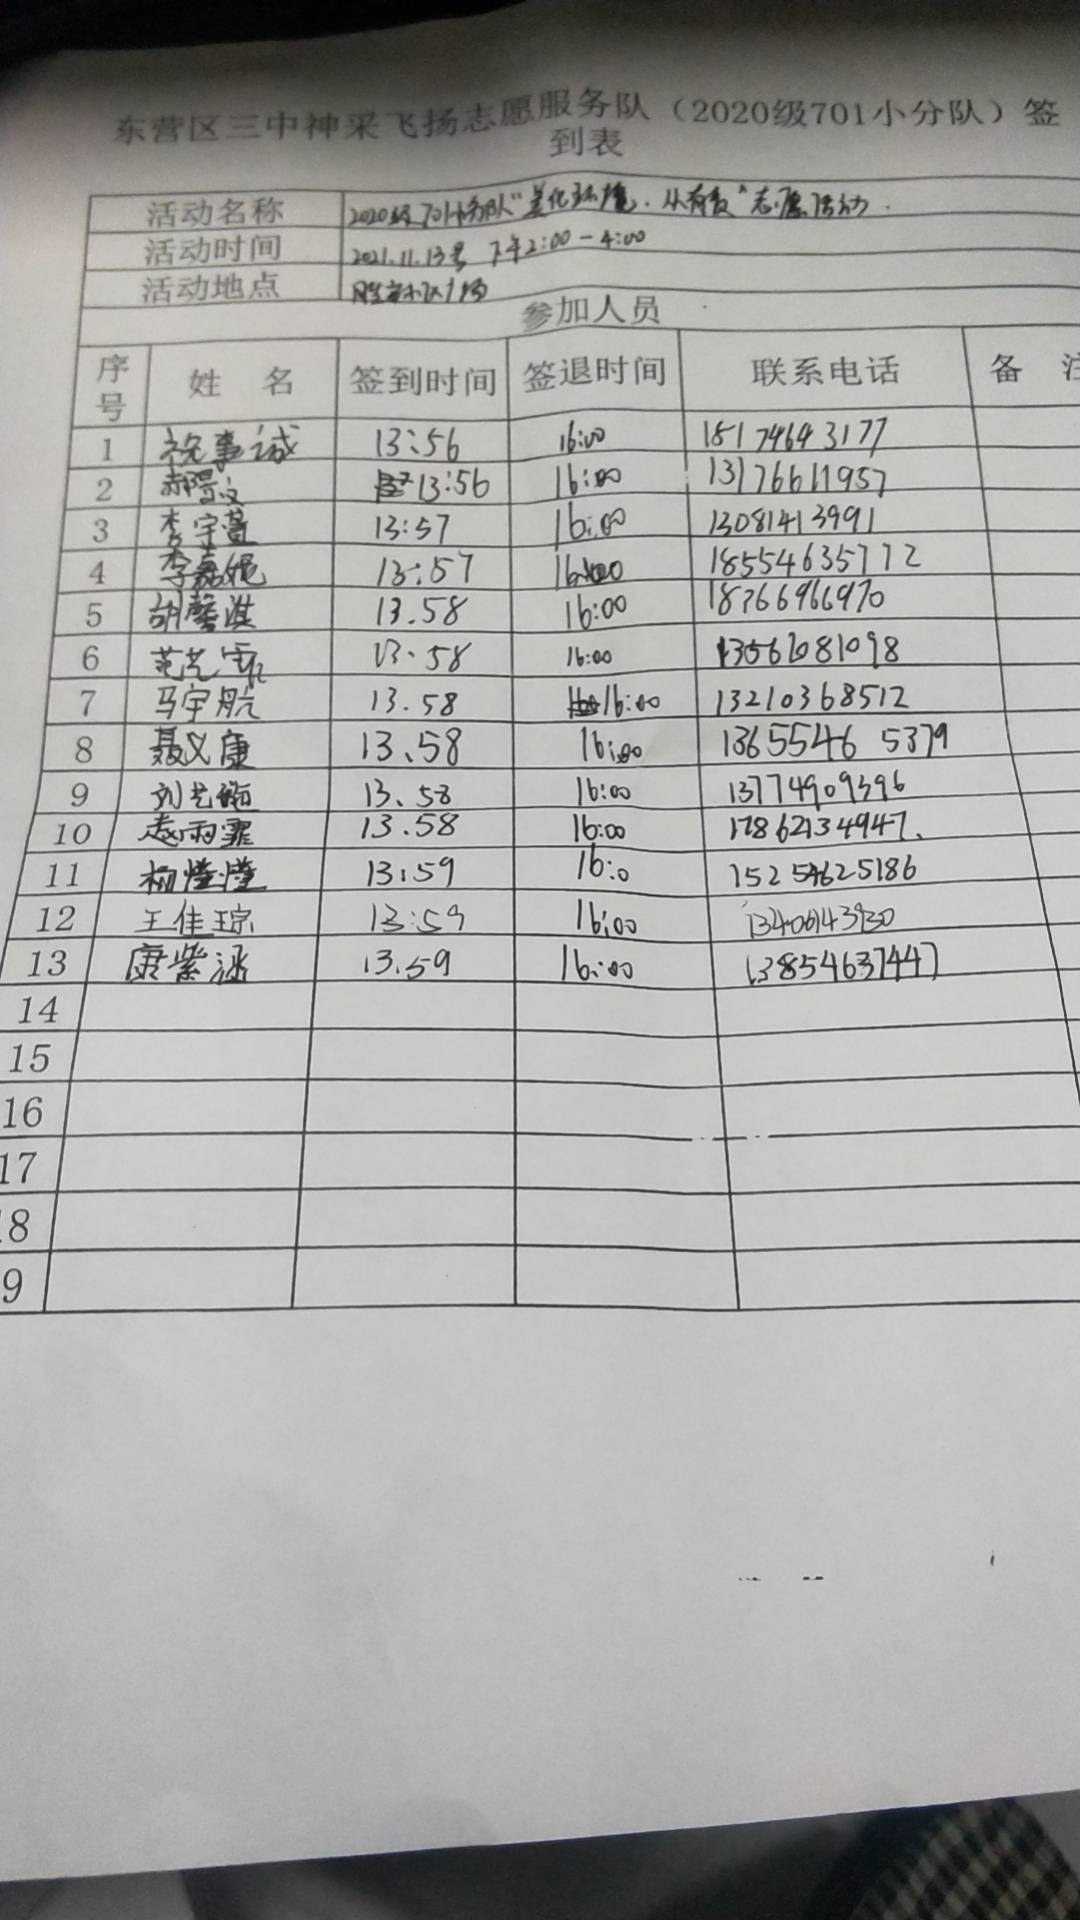 东营区三中神采飞扬志愿服务队（2020级701小分队）签
到表
活动名称 2020级701小分队"美化环境，从有我"志愿活动.
活动时间 2021.11.13号 下午2:00-4:00
活动地点 胜安小区广场
参加人员
序号 姓 名 签到时间 签退时间 联系电话 备 注
1 事诚 13:56 16:00 18174643177
2 郝 13:56 16:00 13176611957
3 李宇萱 13:57 16:00 13081413991
4 李嘉妮 13:57 16:00 18554635772
5 胡馨淇 13.58 16:00 18766966970
6 范艺 13.58 16:00 13562081098
7 马宇航 13.58 16:00 13210368512
8 聂义康 13、58 16:00 13655465379
9 刘艺 13、58 16:00 13774909396
10 赵雨霏 13.58 16:00 17862134947.
11 柳滢滢 13:59 16:0 15254625186
12 王佳琮 13:59 16:00 13406143930
13 康紫涵 13.59 16:00 13854637447
14
15
16
17
18
9